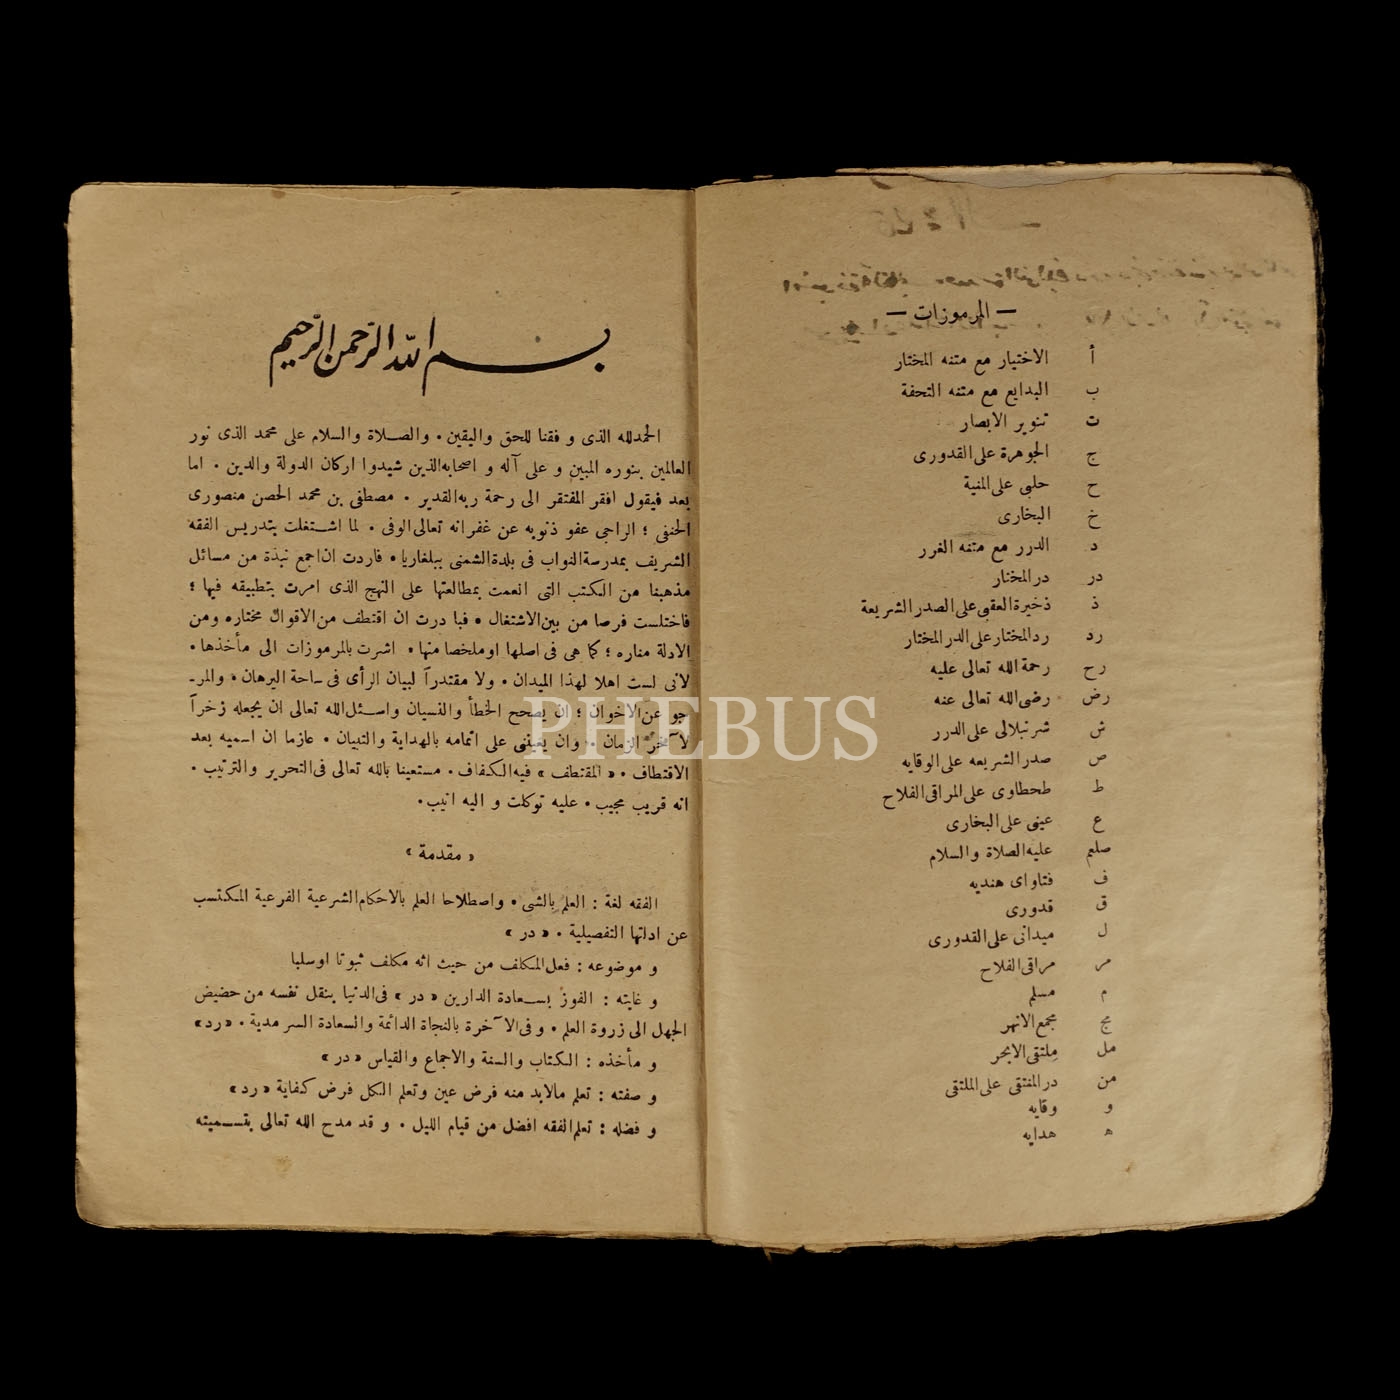 — المرموزات —
أ الاختيار مع متنه المختار
ب البدايع مع متنه التحفة
ت تنوير الابصار
ج الجوهرة على القدورى
ح حلبى على المنية
خ البخارى
د الدرر مع متنه الغرر
در در المختار
ذ ذخيرة العقبى على الصدر الشريعة
رد رد المختار على الدر المختار
رح رحمة الله تعالى عليه
رض رضى الله تعالى عنه
ش شرنبلالى على الدرر
ص صدر الشريعه على الوقايه
ط طحطاوى على المراقى الفلاح
ع عينى على البخارى
صلعم عليه الصلاة والسلام
ف فتاواى هنديه
ق قدورى
ل ميدانى على القدورى
مر مراقى الفلاح
م مسلم
مج مجمع الانهر
مل ملتقى الابحر
من در المنتقى على الملتقى
و وقايه
ه هدايه
بسم الله الرحمن الرحيم
الحمد لله الذى و فقنا للحق واليقين . والصلاة والسلام على محمد الذى نور
العالمين بنوره المبين و على آله و اصحابه الذين شيدوا اركان الدولة والدين . اما
بعد فيقول افقر المفتقر الى رحمة ربه القدير . مصطفى بن محمد الحصن منصورى
الحنفى ؛ الراجى عفو ذنوبه عن غفرانه تعالى الوفى . لما اشتغلت بتدريس الفقه
الشريف بمدرسة النواب فى بلدة الشمنى ببلغاريا . فاردت ان اجمع نبذة من مسائل
مذهبنا من الكتب التى انعمت بمطالعتها على النهج الذى امرت بتطبيقه فيها ؛
فاختلست فرصا من بين الاشتغال . فبا درت ان اقتطف من الاقوال مختاره ومن
الادلة مناره ؛ كما هى فى اصلها او ملخصا منها . اشرت بالمرموزات الى مأخذها .
لأنى لست اهلا لهذا الميدان . ولا مقتدراً لبيان الرأى فى ساحة البرهان . والمر-
جو عن الاخوان ؛ ان يصحح الخطأ والنسيان واسئل الله تعالى ان يجعله زخراً
لآخر الزمان . وان يعيننى على اتمامه بالهداية والتبيان . عازما ان اسميه بعد
الاقتطاف . « المقتطف » فيه الكفاف . مستعينا بالله تعالى فى التحرير والترتيب .
انه قريب مجيب . عليه توكلت و اليه انيب .
« مقدمة »
الفقه لغة : العلم بالشى . واصطلاحا العلم بالاحكام الشرعية الفرعية المكتسب
عن ادلتها التفصيلية . « در »
و موضوعه : فعل المكلف من حيث انه مكلف ثبوتا اوسلبا
و غايته : الفوز بسعادة الدارين « در » فى الدنيا بنقل نفسه من حضيض
الجهل الى زروة العلم . و فى الآخرة بالنجاة الدائمة والسعادة السر مدية . « رد »
و مأخذه : الكتاب والسنة والاجماع والقياس « در »
و صفته : تعلم مالابد منه فرض عين وتعلم الكل فرض كفاية « رد »
و فضله : تعلم الفقه افضل من قيام الليل . و قد مدح الله تعالى بتسميته
PHEBUS